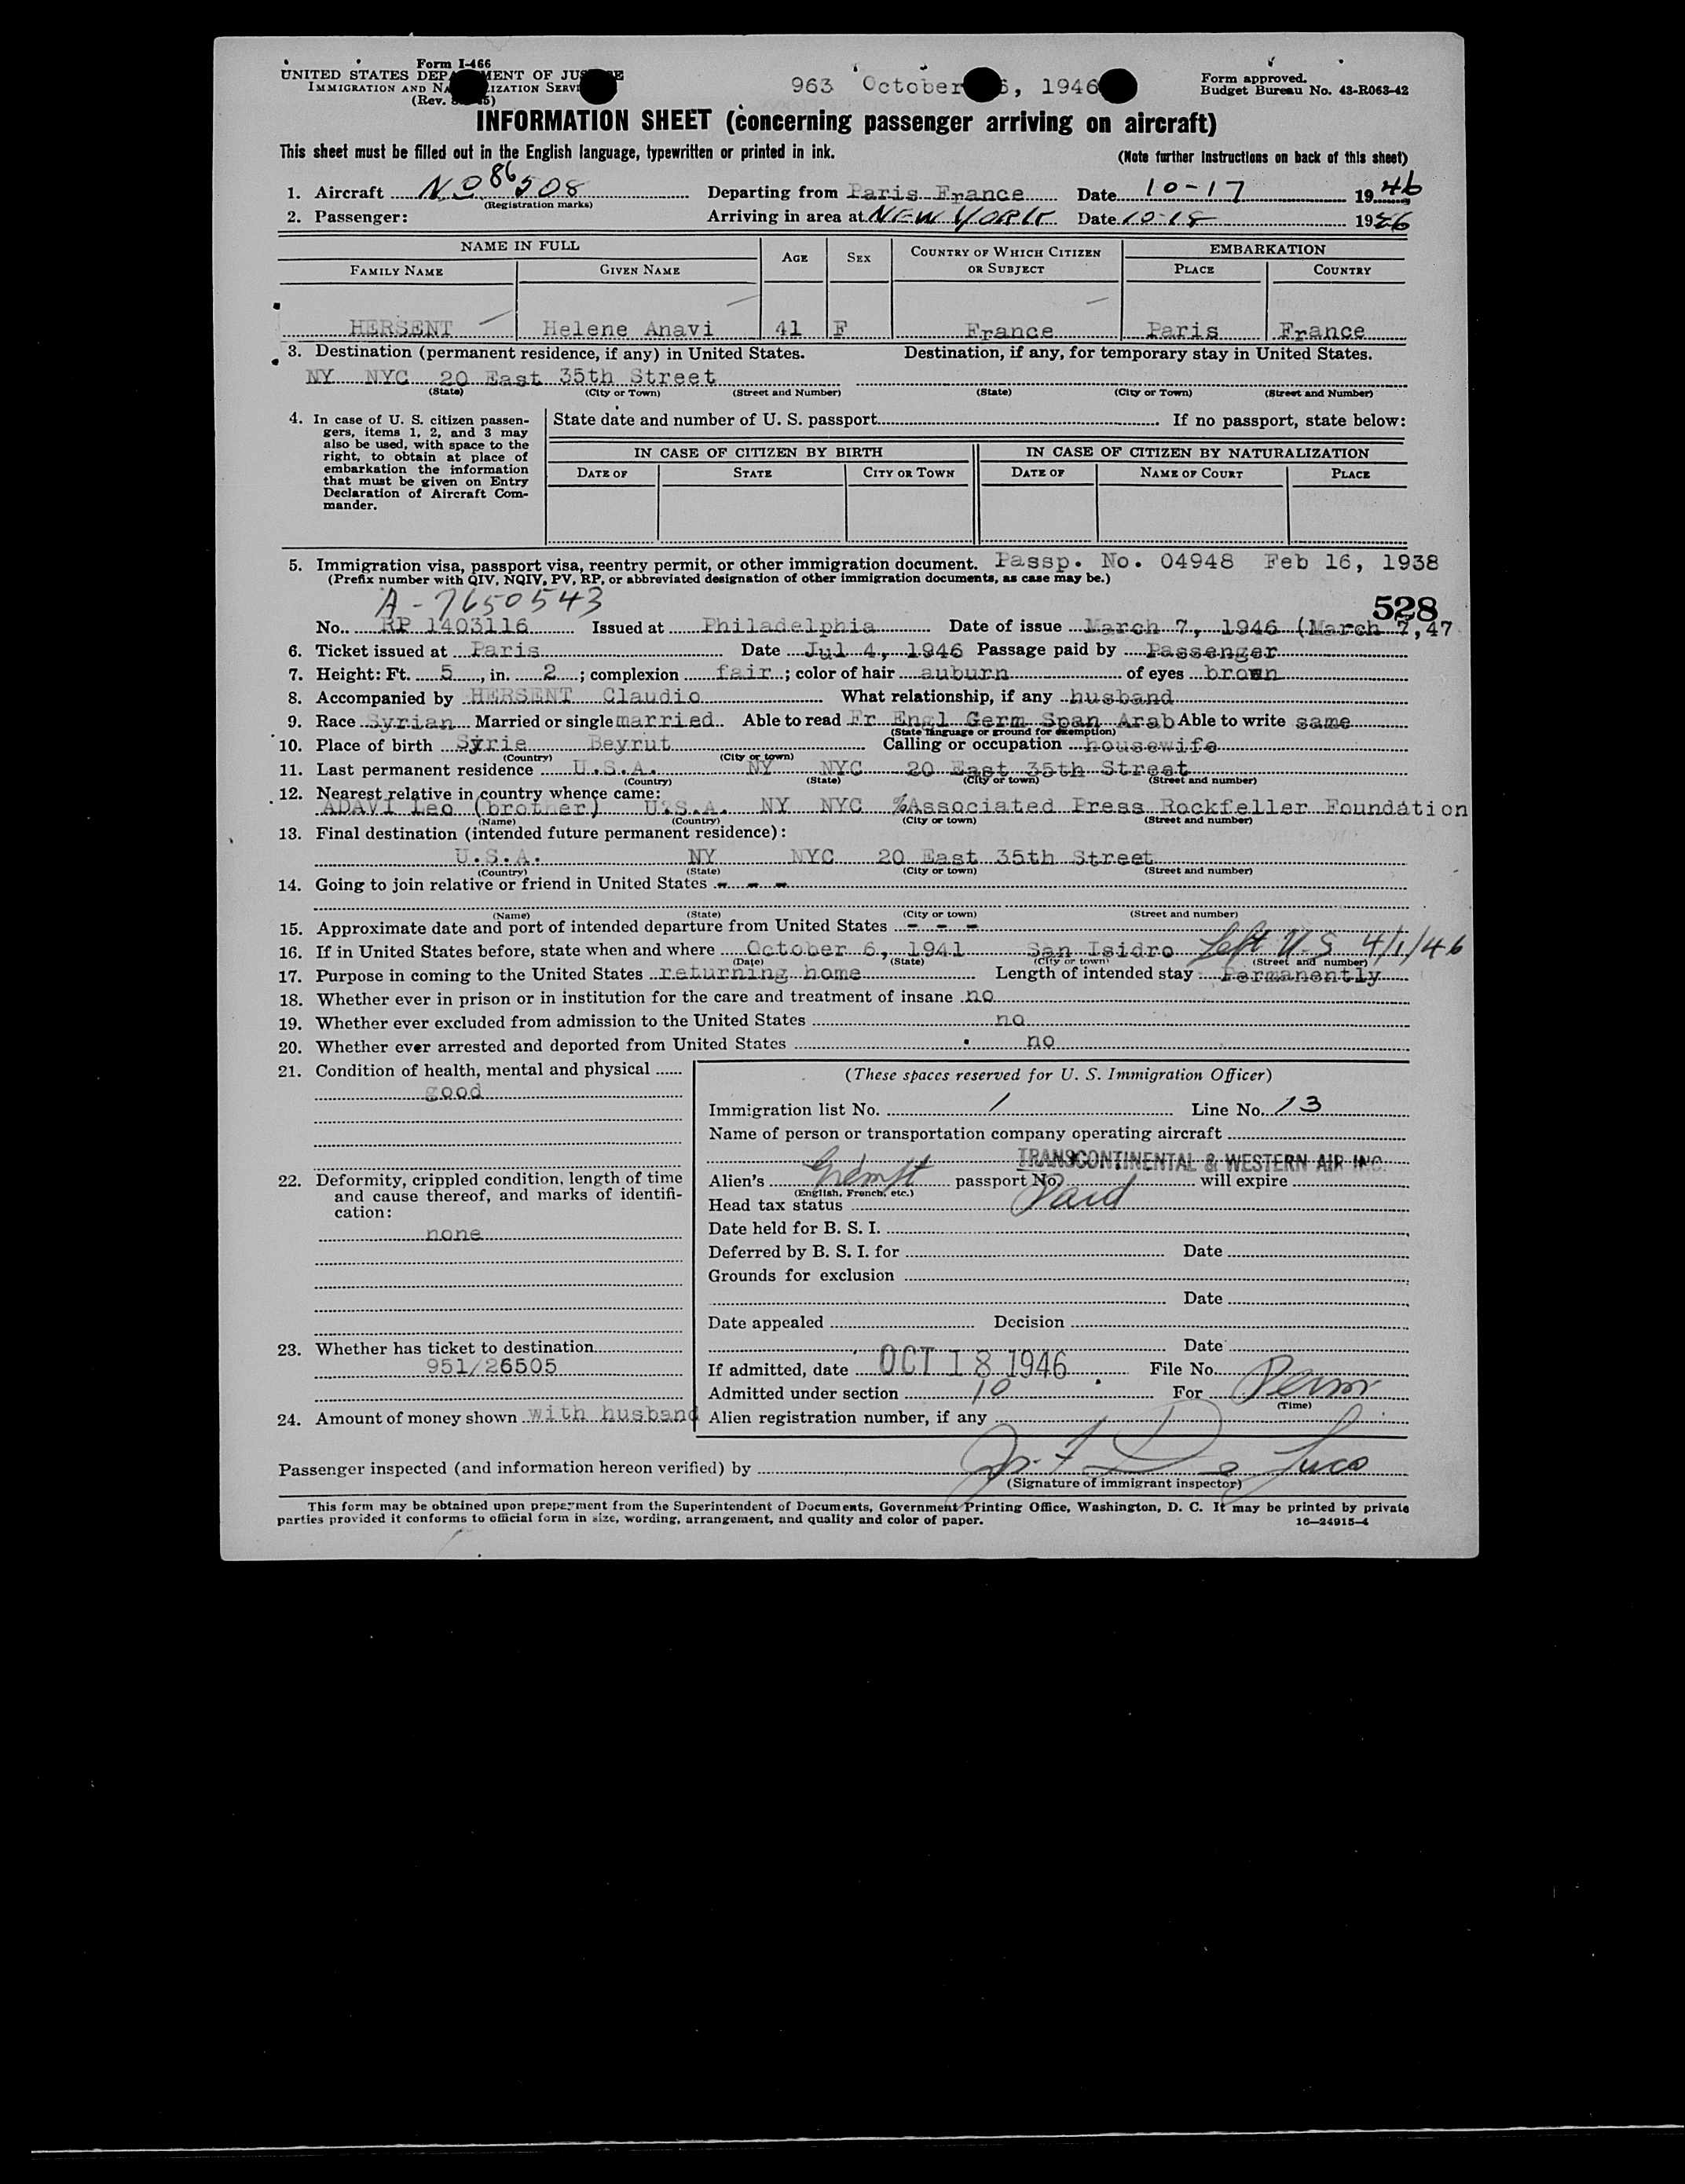 Form I-466
UNITED STATES DEP MENT OF JUS E
IMMIGRATION AND NA LIZATION SERVI
(Rev. 5)
963 October 6, 1946
Form approved.
Budget Bureau No. 43-R063-42
INFORMATION SHEET (concerning passenger arriving on aircraft)
This sheet must be filled out in the English language, typewritten or printed in ink.
(Note further instructions on back of this sheet)
1. Aircraft NO 86508 Departing from Paris France Date 10-17 1946
(Registration marks)
2. Passenger: Arriving in area at NEW YORK Date 10-18 1946
NAME IN FULL AGE SEX COUNTRY OF WHICH CITIZEN OR SUBJECT EMBARKATION
FAMILY NAME GIVEN NAME PLACE COUNTRY
HERSENT Helene Anavi 41 F France Paris France
3. Destination (permanent residence, if any) in United States. Destination, if any, for temporary stay in United States.
NY NYC 20 East 35th Street
(State) (City or Town) (Street and Number) (State) (City or Town) (Street and Number)
4. In case of U. S. citizen passengers, items 1, 2, and 3 may also be used, with space to the right, to obtain at place of embarkation the information that must be given on Entry Declaration of Aircraft Commander.
State date and number of U. S. passport If no passport, state below:
IN CASE OF CITIZEN BY BIRTH IN CASE OF CITIZEN BY NATURALIZATION
DATE OF STATE CITY OR TOWN DATE OF NAME OF COURT PLACE
5. Immigration visa, passport visa, reentry permit, or other immigration document. Passp. No. 04948 Feb 16, 1938
(Prefix number with QIV, NQIV, PV, RP, or abbreviated designation of other immigration documents, as case may be.)
A-7650543
528
No. RP 1403116 Issued at Philadelphia Date of issue March 7, 1946 (March 7, 47
6. Ticket issued at Paris Date Jul 4, 1946 Passage paid by Passenger
7. Height: Ft. 5, in. 2; complexion fair; color of hair auburn of eyes brown
8. Accompanied by HERSENT Claudio What relationship, if any husband
9. Race Syrian Married or single married Able to read Fr Engl Germ Span Arab Able to write same
(State language or ground for exemption)
10. Place of birth Syrie Beyrut Calling or occupation housewife
(Country) (City or town)
11. Last permanent residence U.S.A. NY NYC 20 East 35th Street
(Country) (State) (City or town) (Street and number)
12. Nearest relative in country whence came:
ADAVI Leo (brother) U.S.A. NY NYC %Associated Press Rockfeller Foundation
(Name) (Country) (City or town) (Street and number)
13. Final destination (intended future permanent residence):
U.S.A. NY NYC 20 East 35th Street
(Country) (State) (City or town) (Street and number)
14. Going to join relative or friend in United States - - -
(Name) (State) (City or town) (Street and number)
15. Approximate date and port of intended departure from United States - - -
16. If in United States before, state when and where October 6, 1941 San Isidro Left U.S 4/1/46
(Date) (State) (City or town) (Street and number)
17. Purpose in coming to the United States returning home Length of intended stay Permanently
18. Whether ever in prison or in institution for the care and treatment of insane no
19. Whether ever excluded from admission to the United States no
20. Whether ever arrested and deported from United States no
21. Condition of health, mental and physical
good
22. Deformity, crippled condition, length of time and cause thereof, and marks of identification:
none
23. Whether has ticket to destination
951/26505
24. Amount of money shown with husband
(These spaces reserved for U. S. Immigration Officer)
Immigration list No. 1 Line No. 13
Name of person or transportation company operating aircraft
TRANSCONTINENTAL & WESTERN AIR INC.
Alien's passport No. will expire
(English, French, etc.)
Head tax status Paid
Date held for B. S. I.
Deferred by B. S. I. for Date
Grounds for exclusion
Date
Date appealed Decision
Date
If admitted, date OCT 18 1946 File No.
Admitted under section 10 For Perm
(Time)
Alien registration number, if any
Passenger inspected (and information hereon verified) by
(Signature of immigrant inspector)
This form may be obtained upon prepayment from the Superintendent of Documents, Government Printing Office, Washington, D. C. It may be printed by private
parties provided it conforms to official form in size, wording, arrangement, and quality and color of paper.
16—24915-4